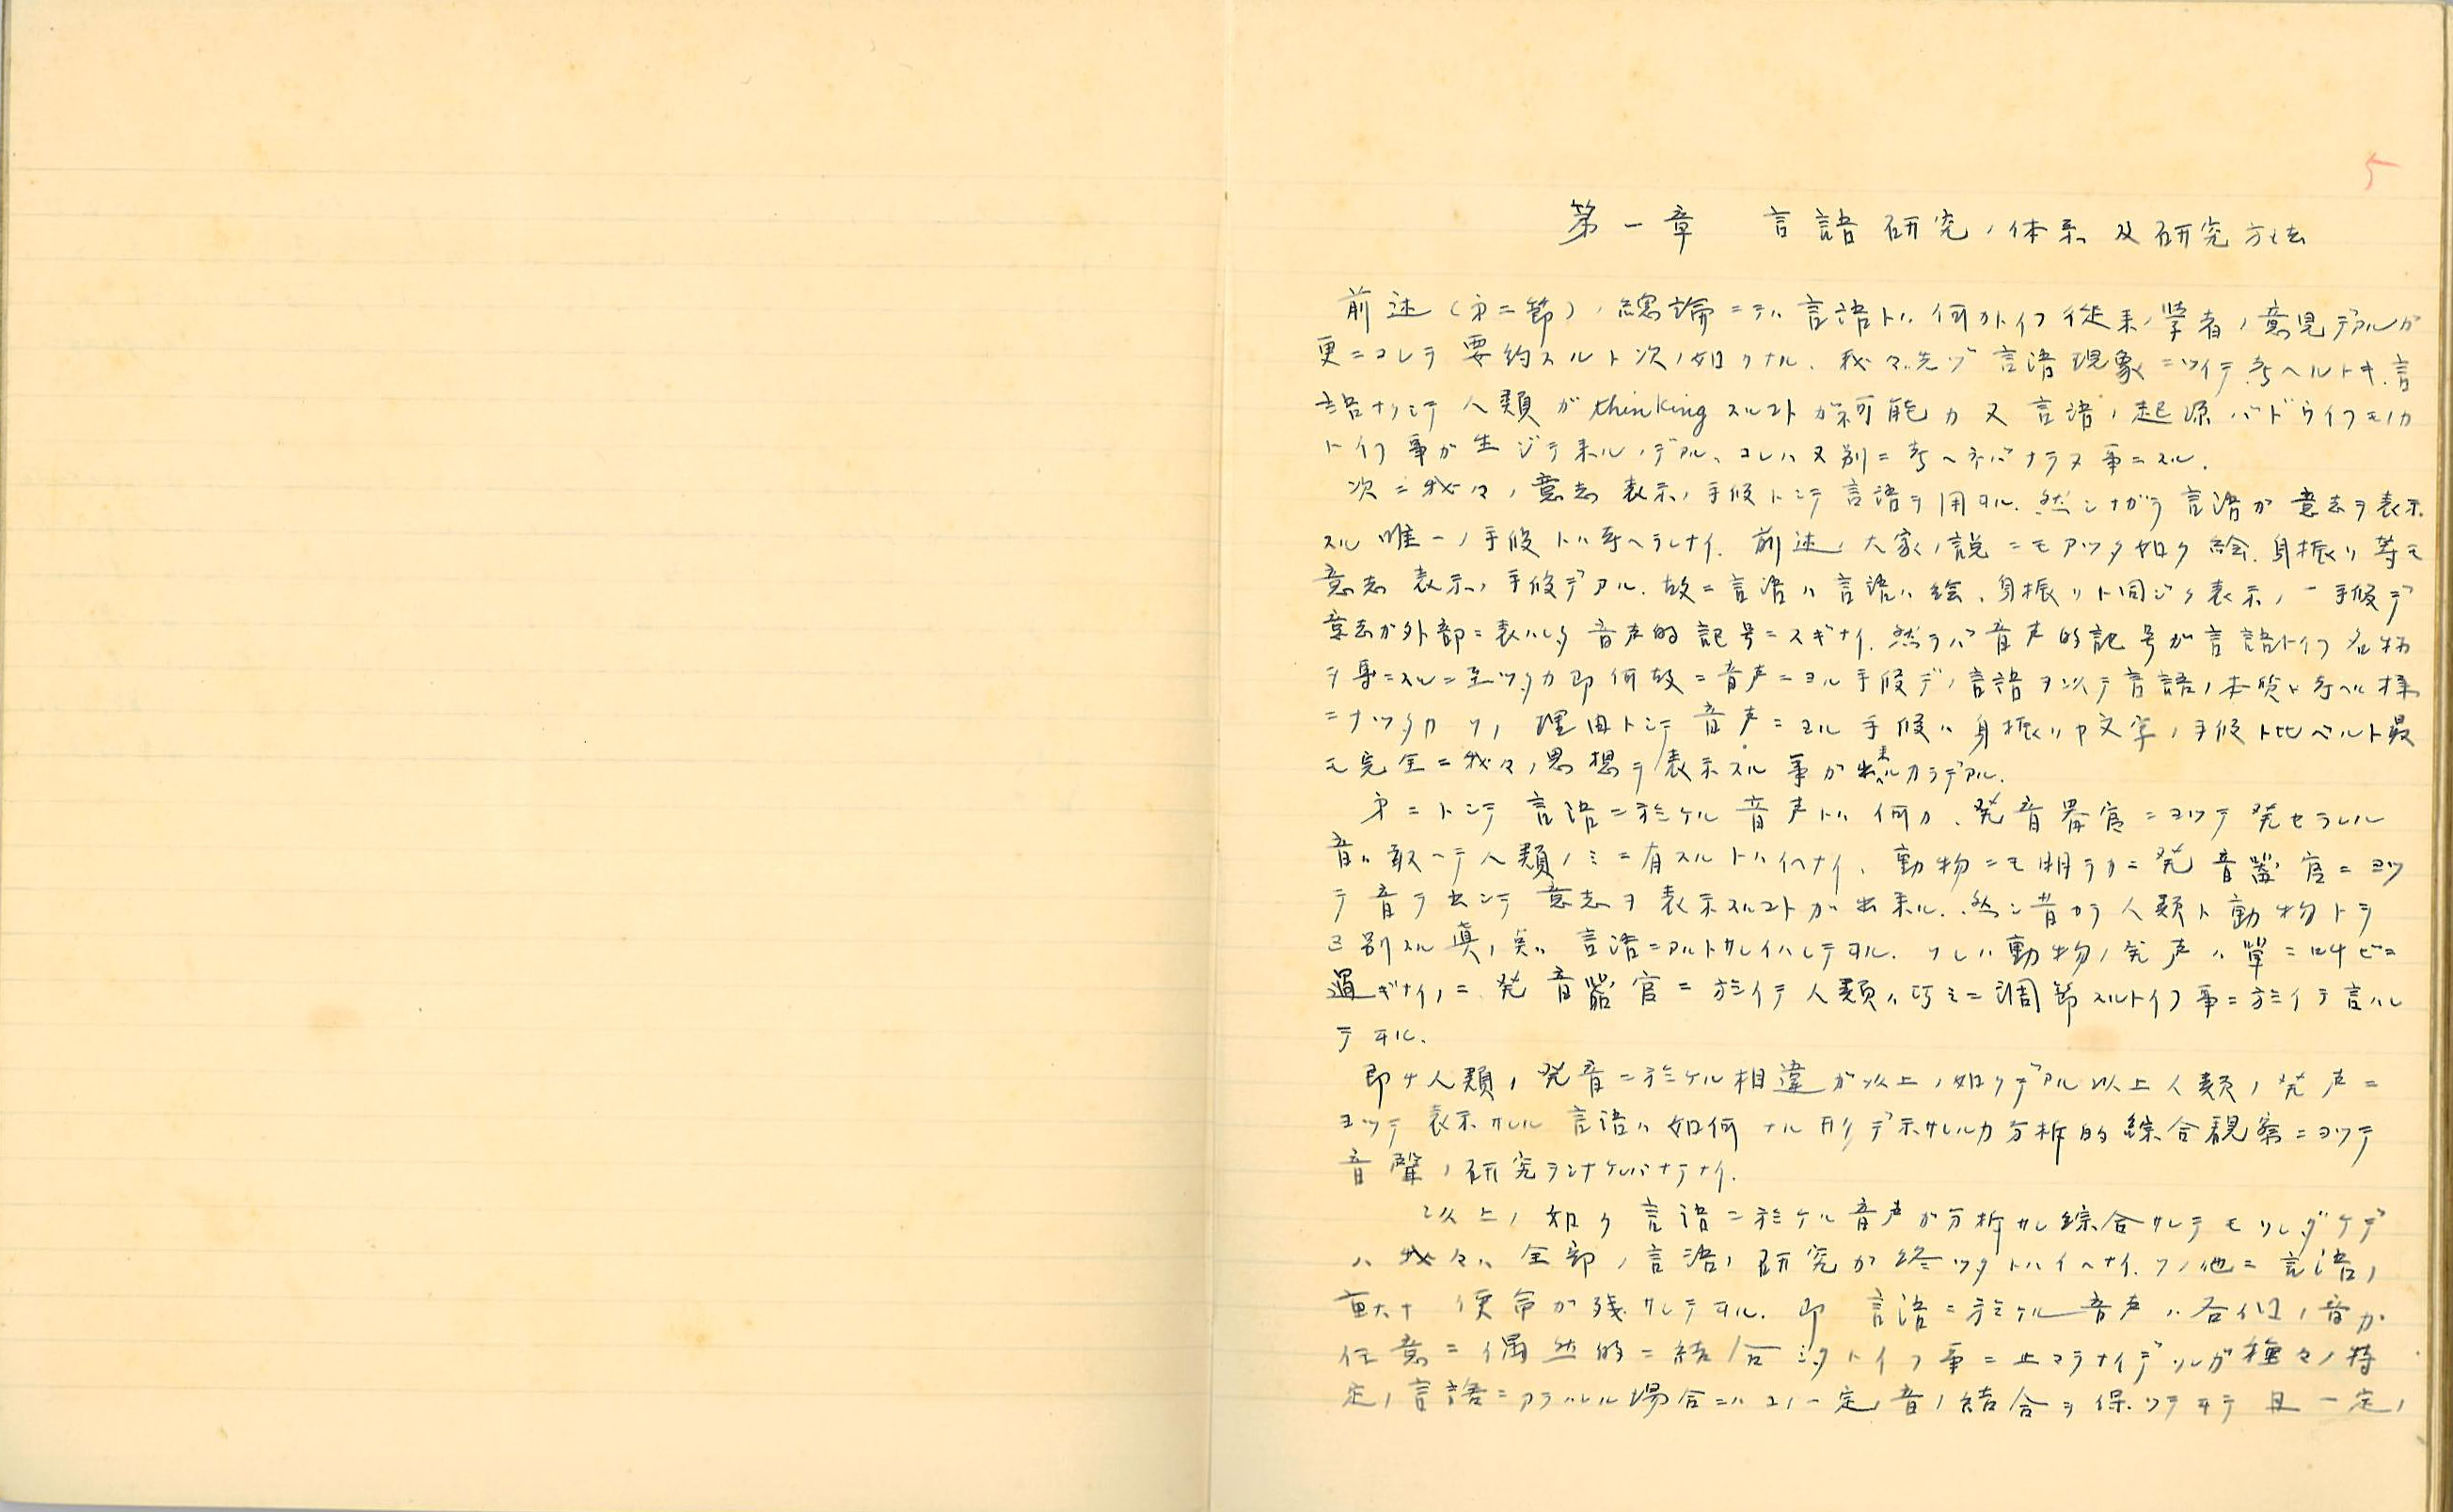 5
第一章 言語研究ノ体系及研究方法
前述(第二節)ノ總論ニテハ言語トハ何カトイフ従来ノ學者ノ意見デアルガ
更ニコレヲ要約スルト次ノ如クナル、我々ハ先ヅ言語現象ニツイテ考ヘルトキ、言
語ナクシテ人類ガthinkingスルコトガ可能カ又言語ノ起源ハドウイフモノカ
トイフ事ガ生ジテ来ルノデアル、コレハ又別ニ考ヘネバナラヌ事ニスル.
次ニ我々ノ意志表示ノ手段トシテ言語ヲ用ヰル. 然シナガラ言語ガ意志ヲ表示
スル唯一ノ手段トハ考ヘラレナイ. 前述ノ大家ノ説ニモアツタ如ク絵、身振リ等モ
意志表示ノ手段デアル. 故ニ言語ハ言語ハ絵、身振リト同ジク表示ノ一手段デ
意志ガ外部ニ表ハレタ音声的記号ニスギナイ. 然ラバ音声的記号ガ言語トイフ名称
ヲ専ニスルニ至ツタカ即何故ニ音声ニヨル手段デノ言語ヲ以テ言語ノ本質ト考ヘル様
ニナツタカソノ理由トシテ音声ニヨル手段ハ身振リヤ文字ノ手段ト比ベルト最
モ完全ニ我々ノ思想ヲ表示スル事ガ出来ルカラデアル.
第二トシテ言語ニ於ケル音声トハ何カ、発音器官ニヨツテ発セラレル
音ハ敢ヘテ人類ノミニ有スルトハイヘナイ、動物ニモ明ラカニ発音器官ニヨツ
テ音ヲ出シテ意志ヲ表示スルコトガ出来ル. 然シ昔カラ人類ト動物トヲ
区別スル真ノ点ハ言語ニアルトサレイハレテヰル. ソレハ動物ノ発声ハ單ニ叫ビニ
過ギナイノニ発音器官ニ於イテ人類ハ巧ミニ調節スルトイフ事ニ於イテ言ハレ
テヰル.
即チ人類ノ発音ニ於ケル相違ガ以上ノ如クデアル以上人類ノ発声ニ
ヨツテ表示サレル言語ハ如何ナル形デ示サレルカ分析的綜合観察ニヨツテ
音聲ノ研究ヲシナケレバナラナイ.
以上ノ如ク言語ニ於ケル音声ガ分析サレ綜合サレテモソレダケデ
ハ我々ハ全部ノ言語ノ研究ガ終ツタトハイヘナイ. ソノ他ニ言語ノ
重大ナ使命ガ残サレテヰル. 即 言語ニ於ケル音声ハ各個ノ音ガ
任意ニ偶然的ニ結合シタトイフ事ニ止マラナイデソレガ種々ノ特
定ノ言語ニアラハレル場合ニハコノ一定ノ音ノ結合ヲ保ツテヰテ且一定ノ